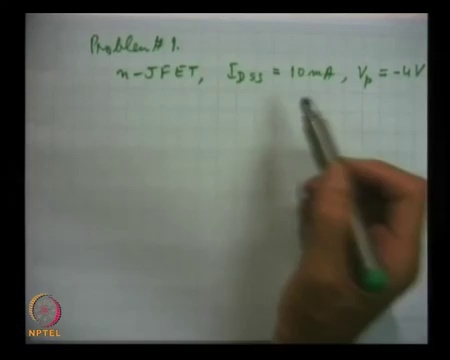 Problem # 1.
n-JFET, I_DSS = 10 mA, V_p = -4V
NPTEL